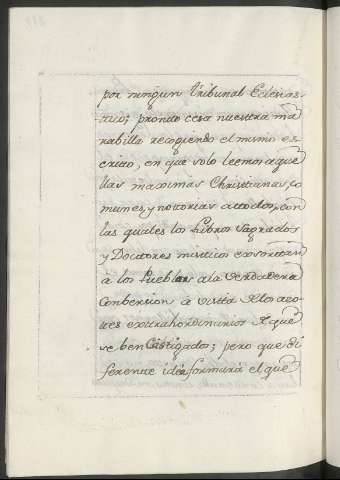 por ningun tribunal Eclesias-
tico; pronto cesa nuestra ma
rabilla recogiendo el mismo es
crito, en que solo leemos aque
llas maximas Christianas, co
munes, y notorias a todos, con
las quales los Libros Sagrados
y Doctores misticos exsortan
à los Pueblos a la verdadera
Combersion à vista de los azo-
tes extrahordinarios de que
se ben Castigados; pero que di
ferente idea formarà el que